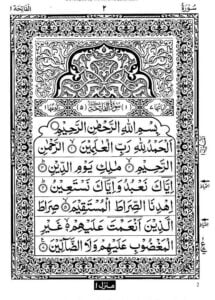 سُورَةُ ٢ الفَاتِحَة ١
بِسْمِ اللّٰهِ الرَّحْمٰنِ الرَّحِيْمِ
اَلْحَمْدُ لِلّٰهِ رَبِّ الْعٰلَمِيْنَ ۙ الرَّحْمٰنِ
الرَّحِيْمِ ۙ مٰلِكِ يَوْمِ الدِّيْنِ ؕ
اِيَّاكَ نَعْبُدُ وَاِيَّاكَ نَسْتَعِيْنُ ؕ
اِهْدِنَا الصِّرَاطَ الْمُسْتَقِيْمَ ۙ صِرَاطَ
الَّذِيْنَ اَنْعَمْتَ عَلَيْهِمْ ۙ غَيْرِ
الْمَغْضُوْبِ عَلَيْهِمْ وَلَا الضَّآلِّيْنَ
منزل ١